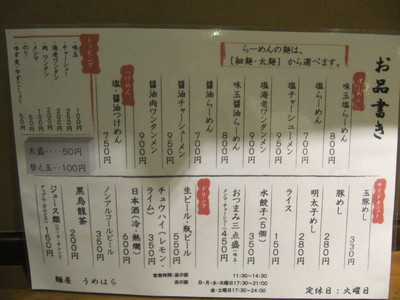 お品書き
らーめんの麺は、
【細麺・太麺】から選べます。
らーめん
味玉塩らーめん 800円
塩らーめん 700円
塩チャーシューメン 900円
塩海老ワンタンメン 900円
味玉醤油らーめん 800円
醤油らーめん 700円
醤油チャーシューメン 900円
醤油肉ワンタンメン 900円
つけめん
塩・醤油つけめん 750円
トッピング
味玉 100円
チャーシュー 250円
海老ワンタン 200円
肉ワンタン 200円
メンマ 100円
のり 100円
50円
大盛‥‥50円
替え玉‥100円
サイドメニュー
玉豚めし 330円
豚めし 280円
明太子めし 280円
ライス 150円
水餃子(5個) 350円
おつまみ三点盛 450円
ドリンク
生ビール・瓶ビール 500円
チュウハイ(レモン・ライム) 350円
日本酒(冷・熱燗) 600円
ノンアルコールビール 350円
黒烏龍茶 200円
ジュース類 150円
麺屋 うめはら
営業時間:昼の部 11:30~14:30
夜の部 日・月・水・木曜日17:30~21:00
金・土曜日17:30~24:00
定休日:火曜日